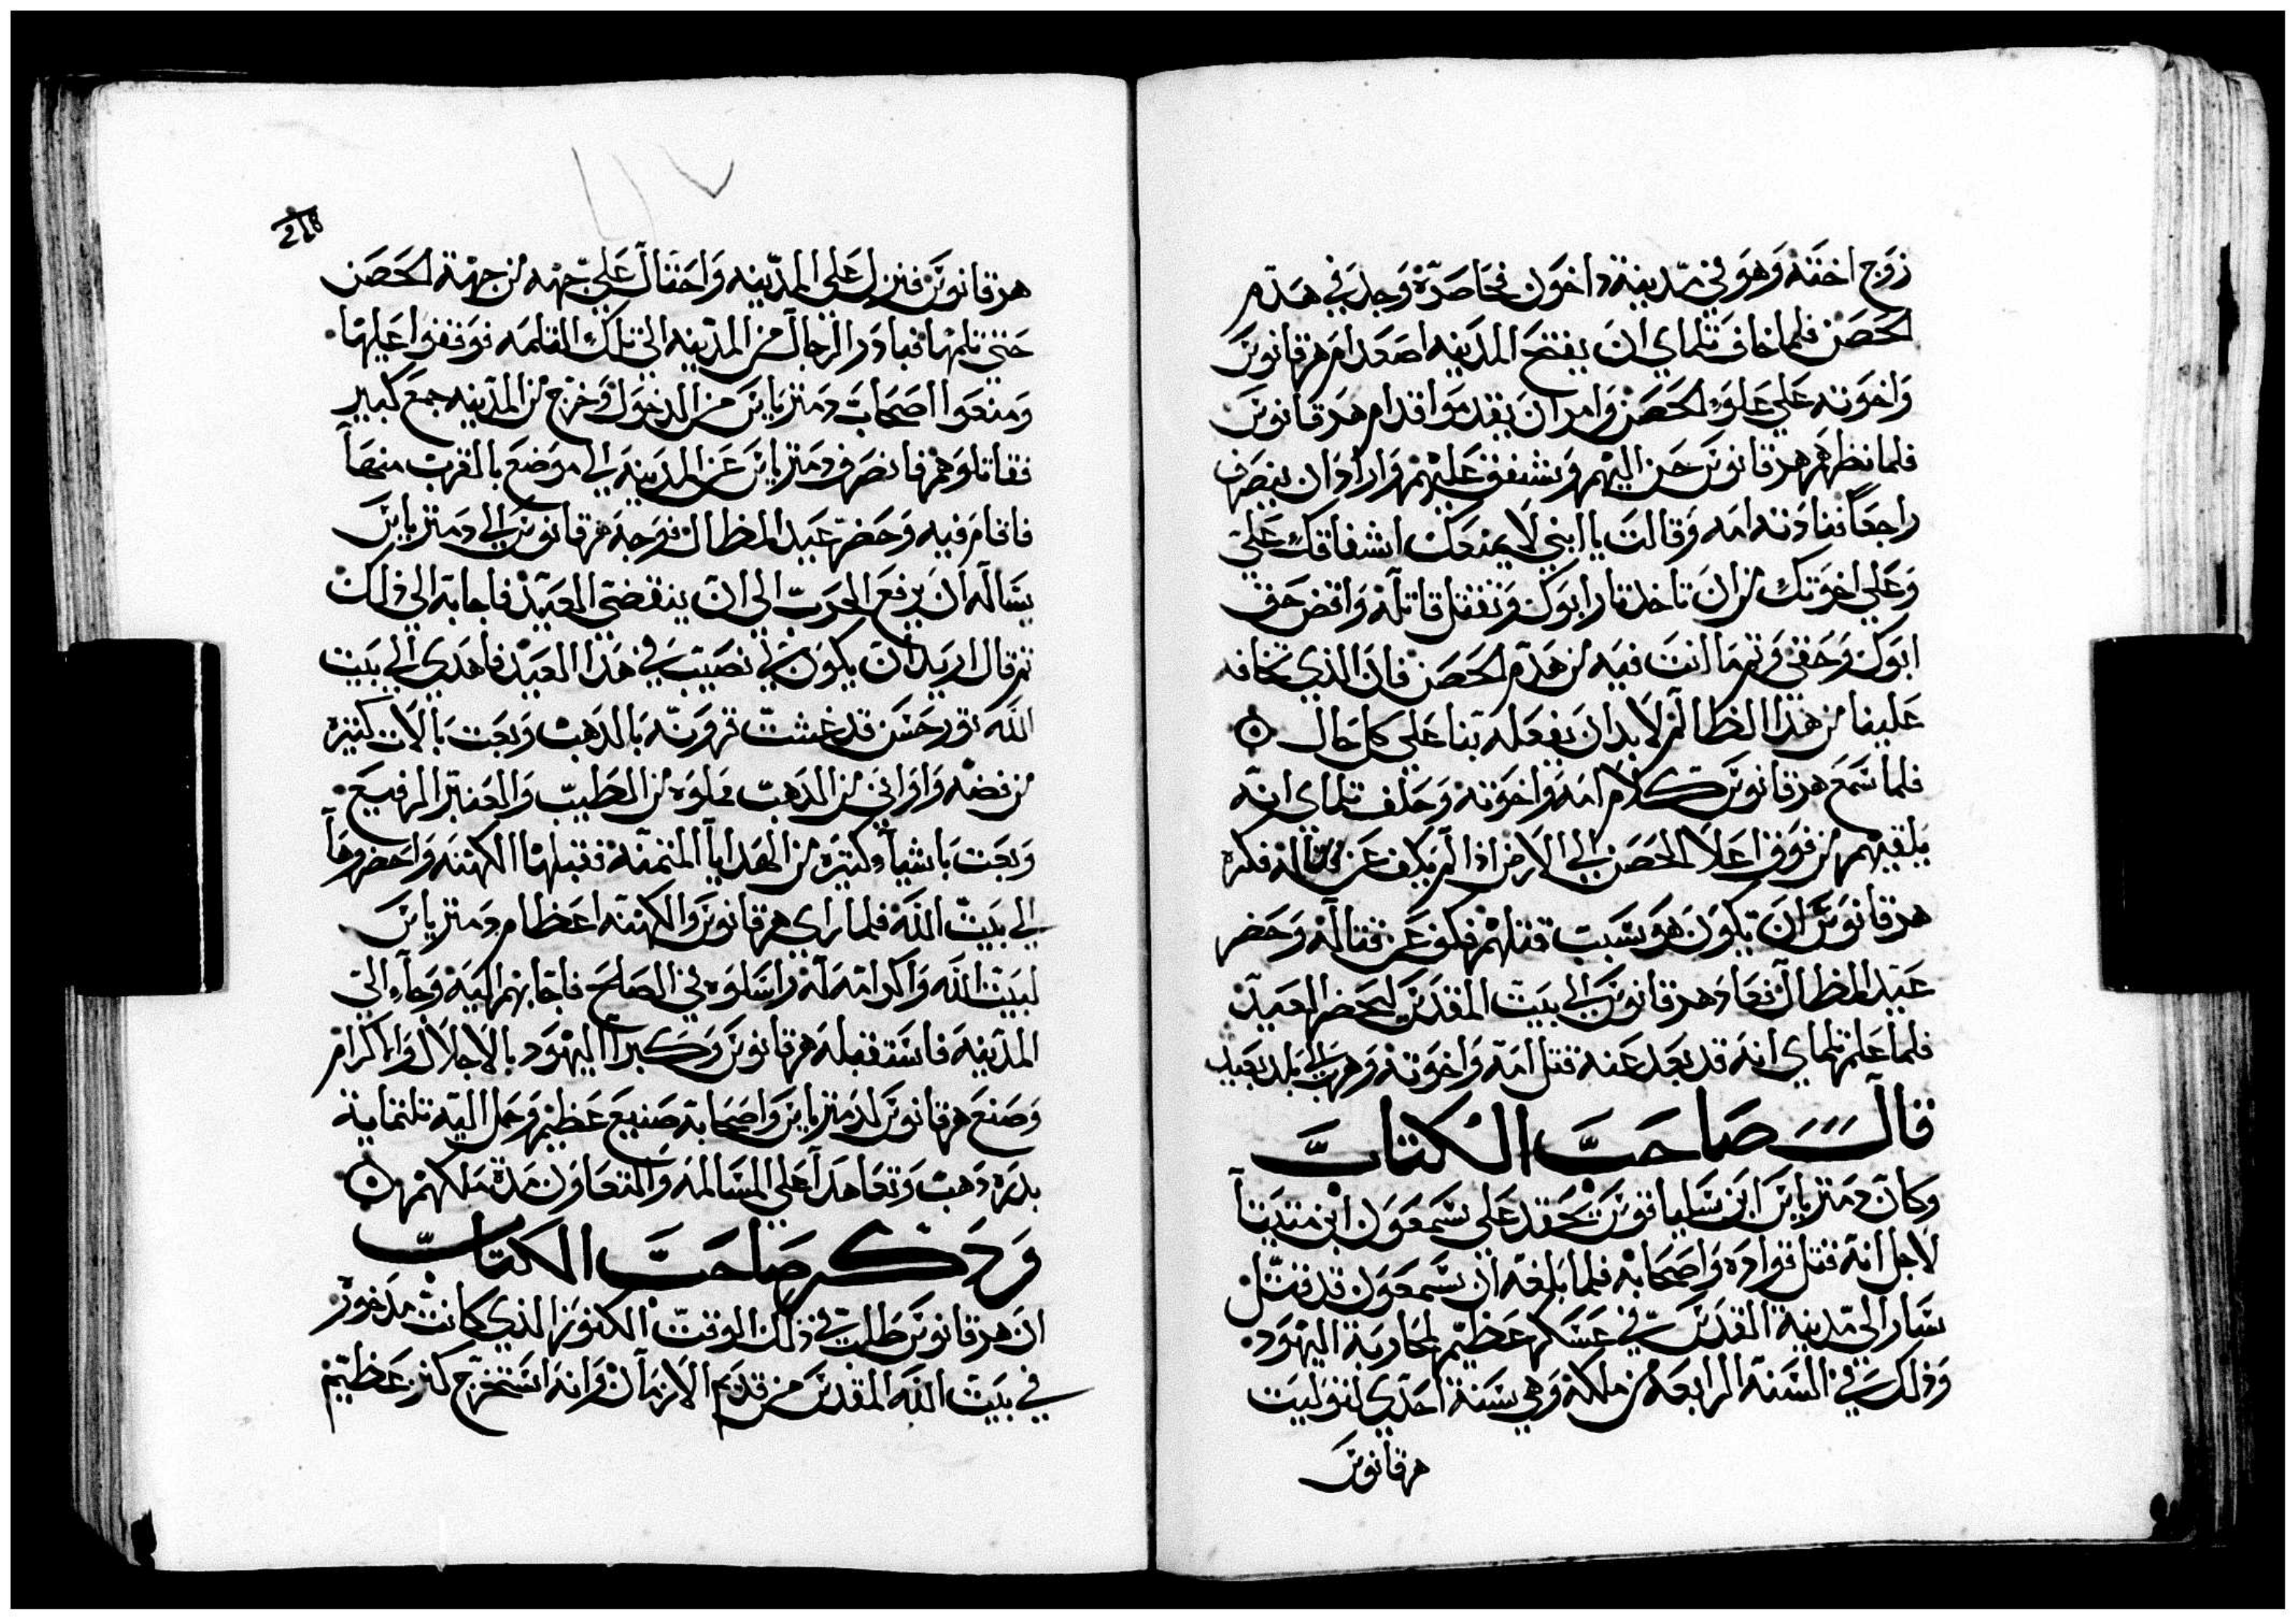 زوج اخته وهو في مدينة داخون فحاصره وجد في هدم
الحصن فلما خاف تلماي ان يفتح المدينه اصعد ام هرقانوس
واخوته علي علو الحصن وامر ان يقدموا قدام هرقانوس
فلما نظرهم هرقانوس حن اليهم وشفق عليهم واراد ان ينصرف
راجعاً فنادته امه وقالت يا ابني لا يمنعك اشفاقك علي
وعلي اخوتك من ان تاخذ تار ابوك وتقتل قاتله واقض حق
ابوك وحقي وتمم ما انت فيه من هدم الحصن فان الذي تخافه
علينا من هذا الظالم لابد ان يفعله بنا علي كل حال
فلما سمع هرقانوس كلام امه واخوته وحلف تلماي انه
يلقيهم من فوق اعلا الحصن الي الارض اذا لم يكف عن قتاله فكره
هرقانوس ان يكون هو سبب قتلهم فكف عن قتاله وحضر
عيد المظال فعاد هرقانوس الي بيت المقدس ليحضر العيد
فلما علم تلماي انه قد بعد عنه قتل امه واخوته وهرب الي بلد بعيد
قال صاحب الكتاب
وكان دمتريايس ابن سلياقوس يحقد علي سمعون ابن متيتيا
لاجل انه قتل قواده واصحابه فلما بلغه ان سمعون قد قتل
سار الي مدينة القدس في عسكر عظيم لمحاربة اليهود
وذلك في السنه الرابعه من ملكه وهي سنة احدي لتوليت
هرقانوس
218
١١٧
هرقانوس فنزل علي المدينه واحتال علي جهه من جهة الحصن
حتي تلمها فبادر الرجال من المدينه الي تلك الثلمه فوقفوا عليها
ومنعوا اصحاب دمتريايس من الدخول وخرج من المدينه جمع كبير
فقاتلوهم فانصرف دمتريايس عن المدينه الي موضع بالقرب منها
فاقام فيه وحضر عيد المظال فوجه هرقانوس الي دمتريايس
يساله ان يرفع الحرب الي ان ينقضي العيد فاجابه الي ذلك
تم قال اريد ان يكون لي نصيب في هذا العيد فاهدي الي بيت
الله تور حسن قد غشت قرونه بالدهب وبعت بالات كتيره
من فضه واواني من الدهب مملوه من الطيب والعنبر الرفيع
وبعت باشياء كتيره من الهدايا المتمنه فقبلها الكهنه واحضروها
الي بيت الله فلما راي هرقانوس والكهنه اعظام دمتريايس
لبيت الله واكرامه له راسلوه في الصلح فاجابهم اليه وجاء الي
المدينه فاستقبله هرقانوس وكبرا اليهود بالاجلال والاكرام
وصنع هرقانوس لدمتريايس واصحابه صنيع عظيم وحمل اليه تلتماية
بدره دهب وتعاهدا علي المسالمه والتعاون مدة ملكهم
وذكر صاحب الكتاب
ان هرقانوس طلب في ذلك الوقت الكنوز الذي كانت مدخور
في بيت الله المقدس من قديم الازمان وانه استخرج كنز عظيم